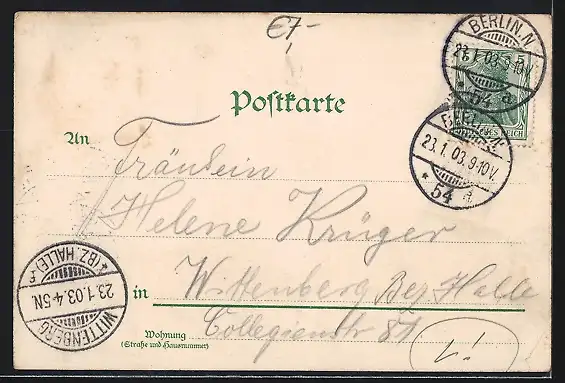 €7,-
BERLIN.N
23.1.03.9-10V.
* 54 a
Postkarte
BERLIN.N
23.1.03.9-10V.
* 54 a.
An Fräulein
Helene Krüger
in Wittenberg Bez. Halle
Wohnung Collegienstr 81
(Straße und Hausnummer)
WITTENBERG
23.1.03.4-5N
(BZ. HALLE)